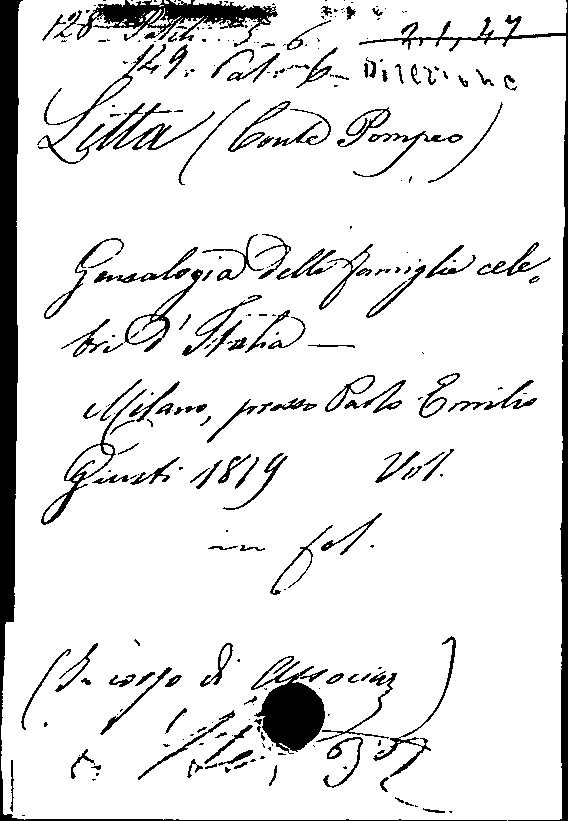 128. Palch. 5-6. 2.1.47
149. Palch. 6- Direzione
Litta (Conte Pompeo)
Genealogia delle famiglie cele-
bri d'Italia —
Milano, presso Paolo Emilio
Giusti 1819 Vol.
in fol.
(In corso di Associaz